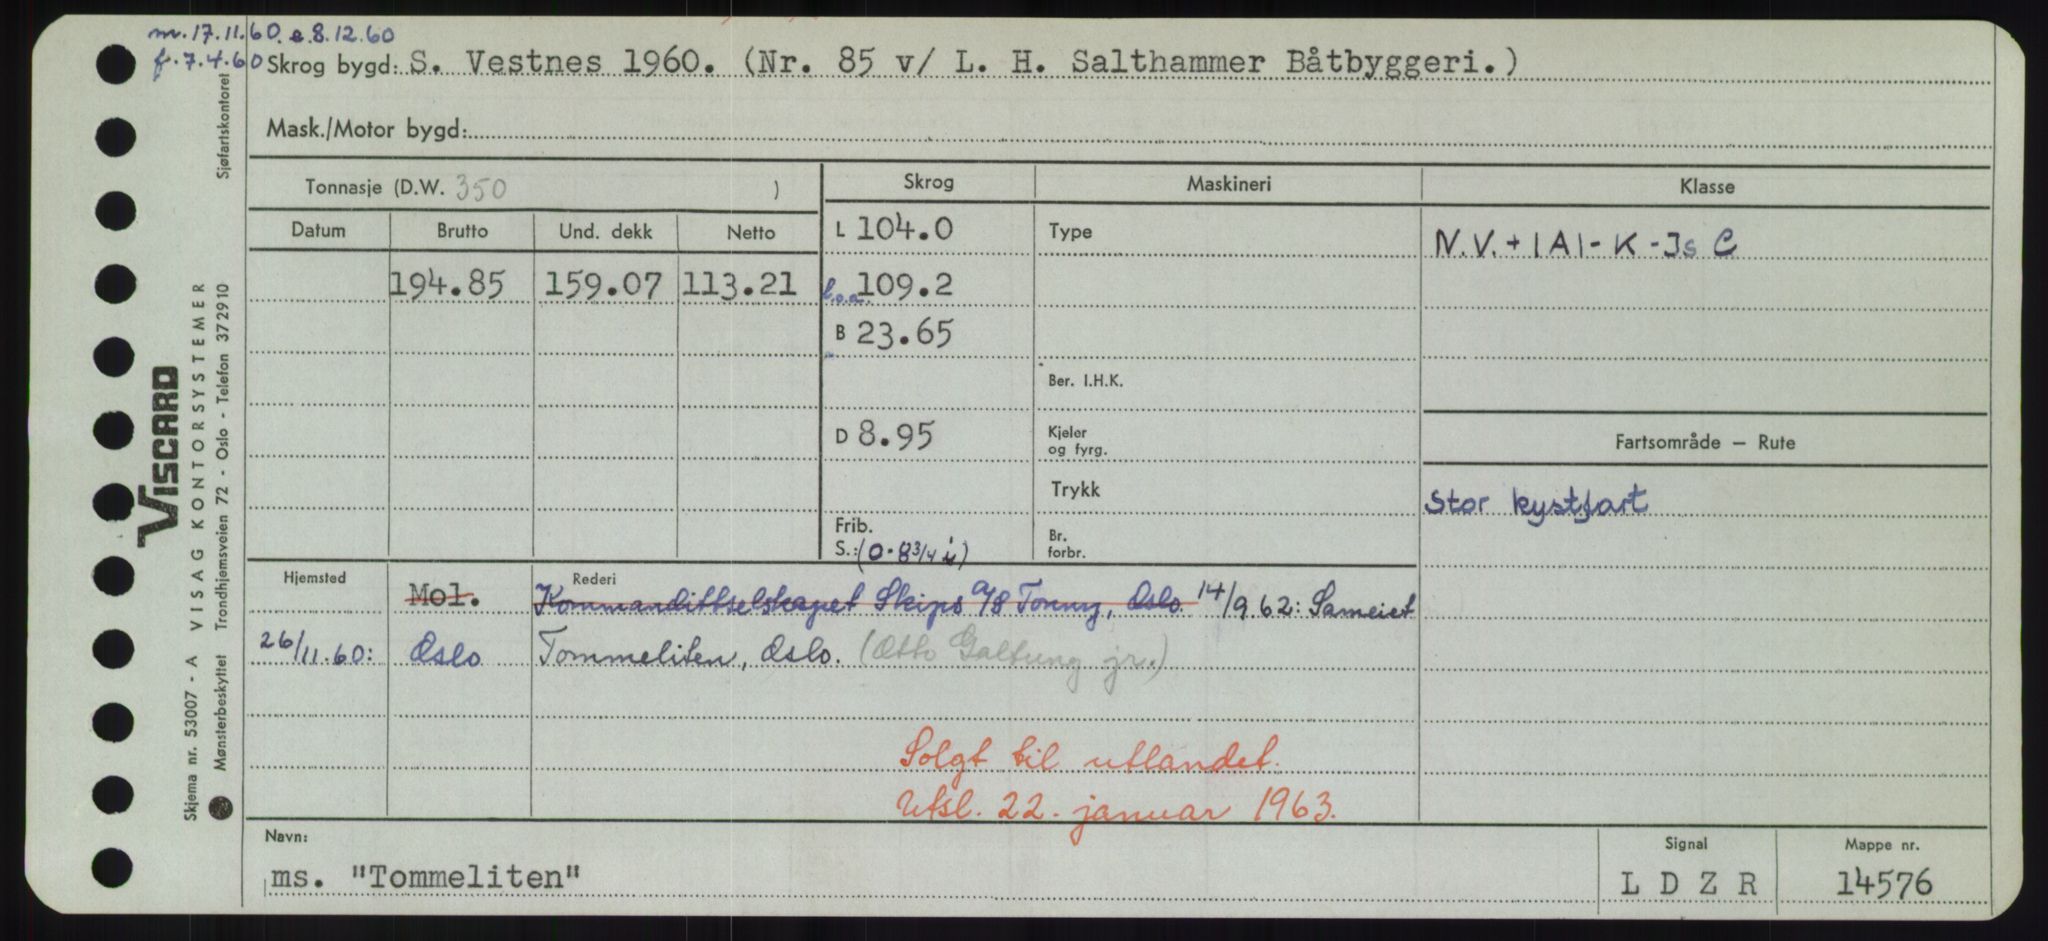 m. 17.11.60. e. 8.12.60
f. 7.4.60
Skrog bygd: S. Vestnes 1960. (Nr. 85 v/ L. H. Salthammer Båtbyggeri.)
Mask./Motor bygd:
Tonnasje (D.W. 350 )
Skrog Maskineri Klasse
Datum Brutto Und. dekk Netto
L 104.0 Type N.V. + |A| - K - Is C
194.85 159.07 113.21 l.o.a. 109.2
B 23.65
Ber. I.H.K.
D 8.95 Kjeler og fyrg. Fartsområde — Rute
Trykk Stor kystfart
Frib.
S.: (0-8 3/4 i) Br. forbr.
Hjemsted Rederi
Mol. Kommandittselskapet Skips A/S Tonny, Oslo. 14/9.62: Sameiet
26/11.60: Oslo Tommeliten, Oslo. (Otto Galtung jr.)
Solgt til utlandet.
Utsl. 22. januar 1963.
Navn: Signal Mappe nr.
ms. "Tommeliten" L D Z R 14576
Viscard
Skjema nr. 53007 - A VISAG KONTORSYSTEMER
Mønsterbeskyttet Trondhjemsveien 72 - Oslo - Telefon 372910 Sjøfartskontoret